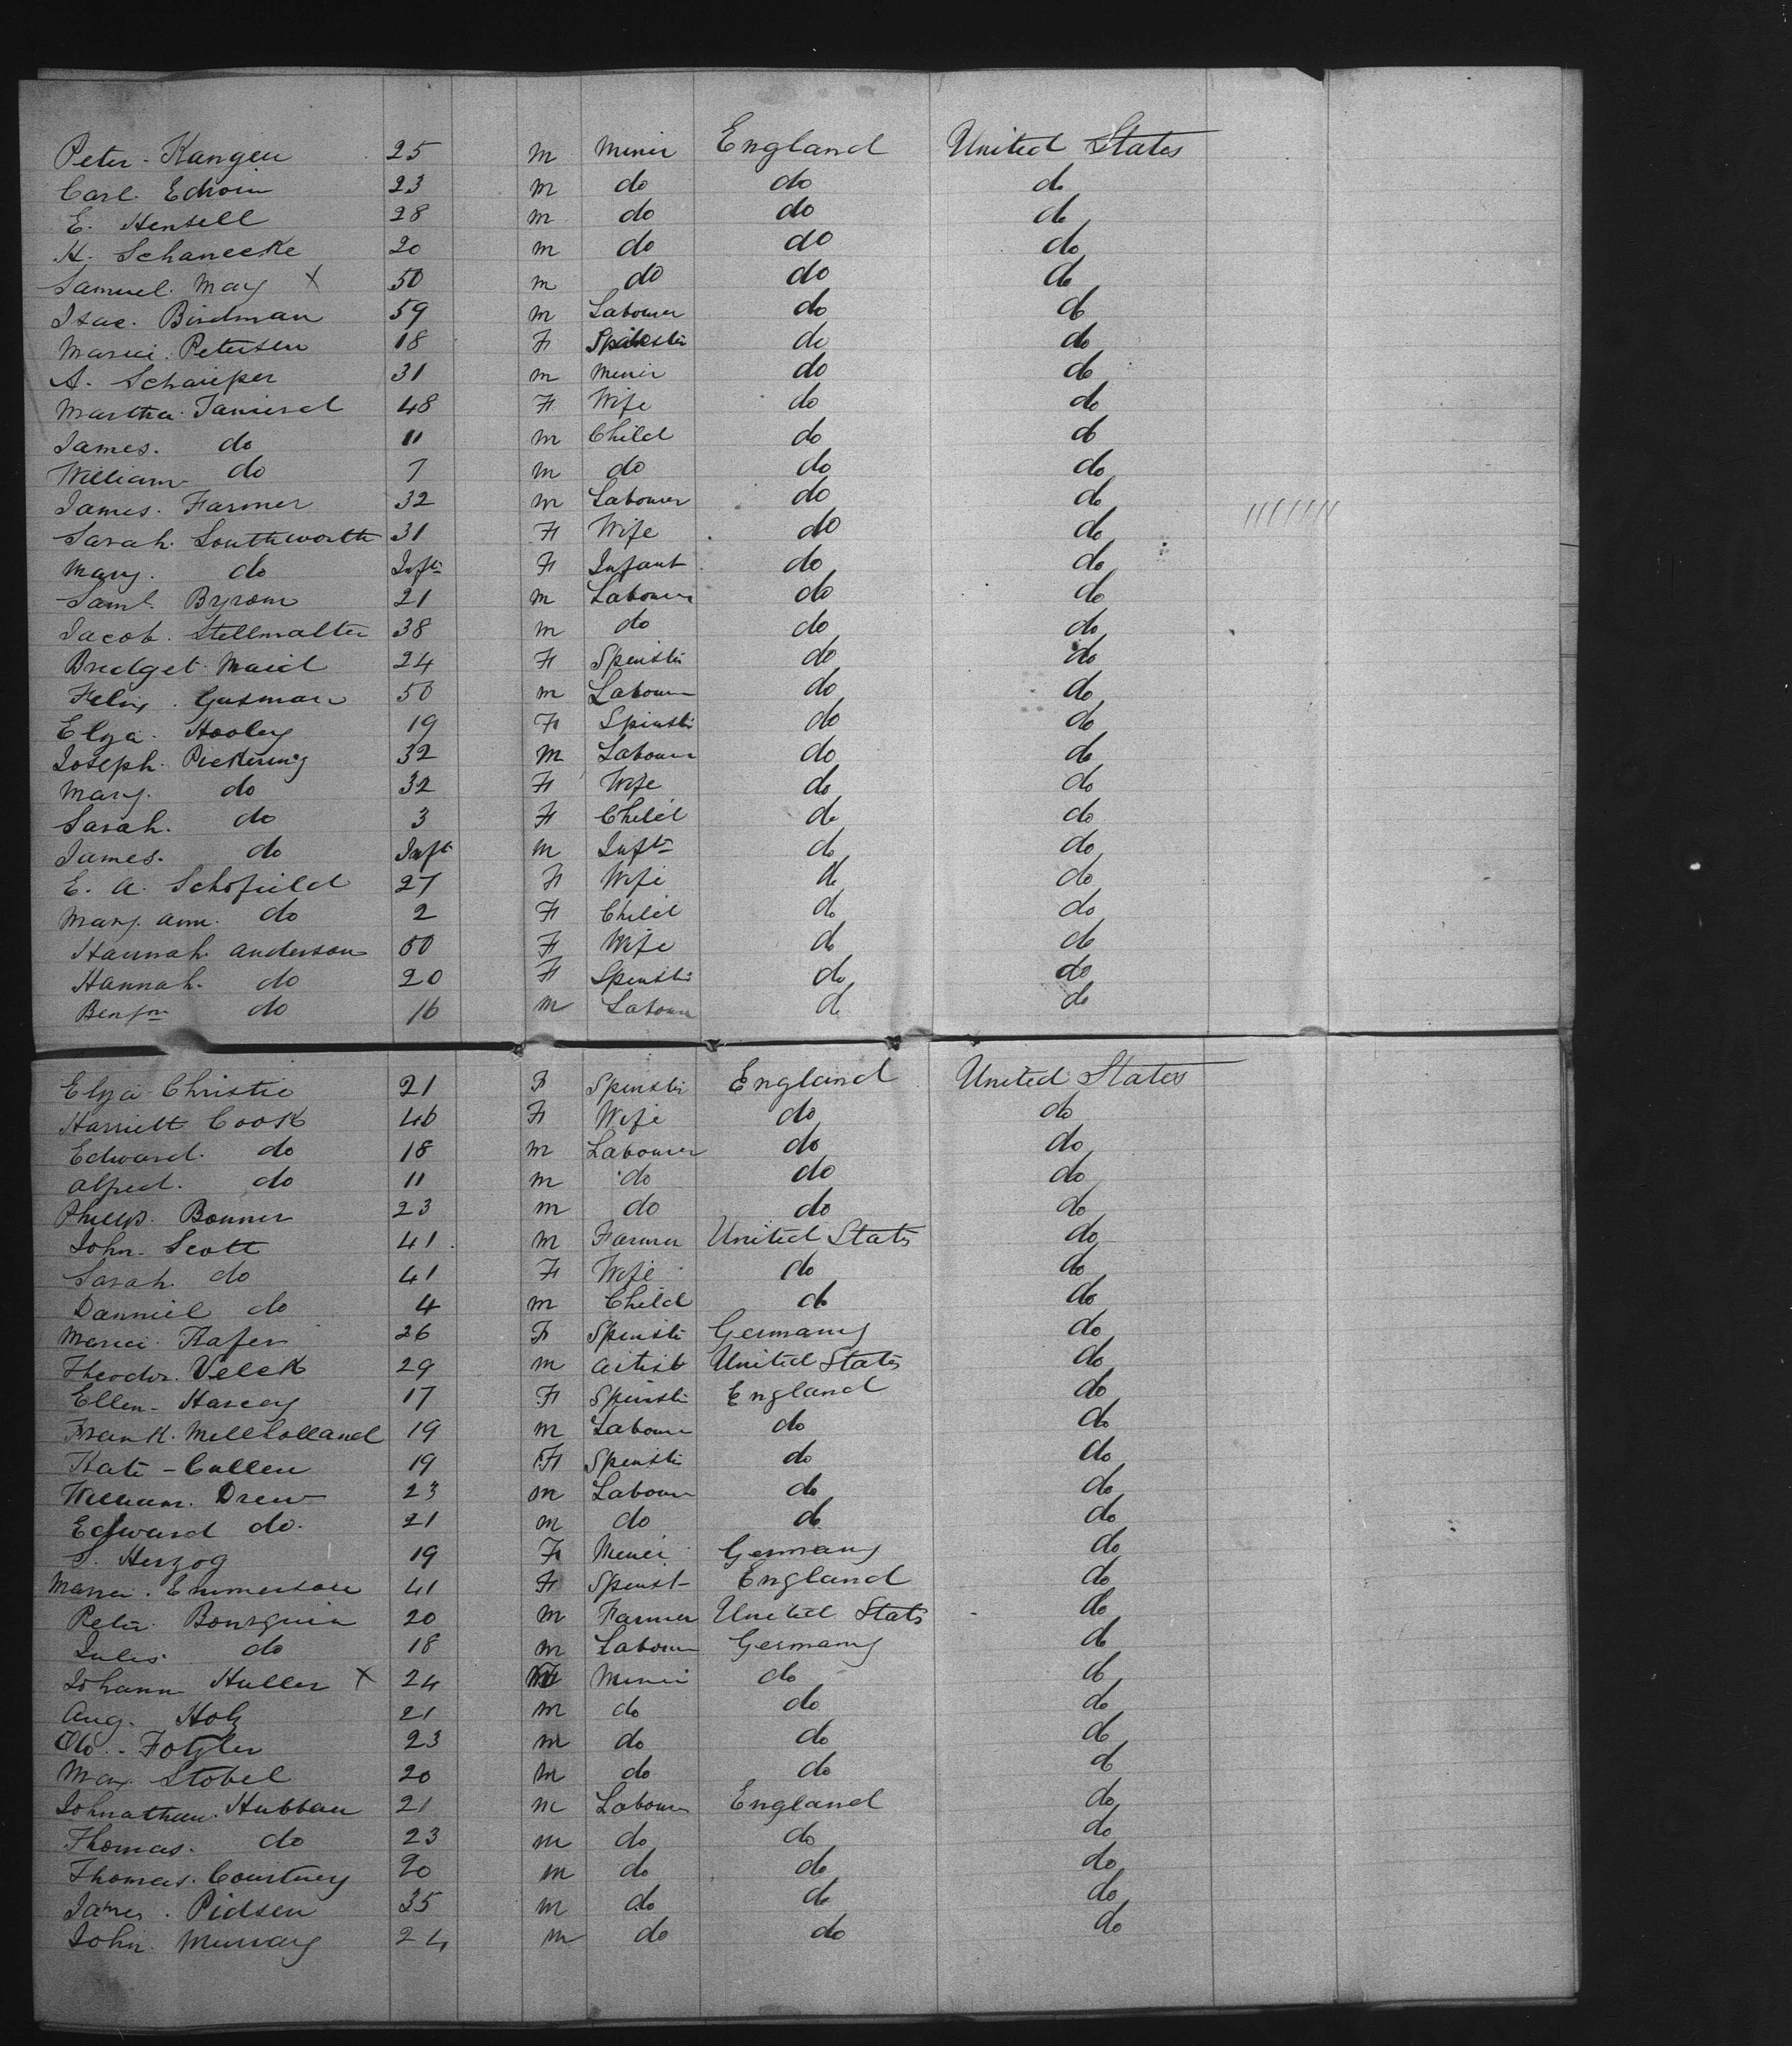 Peter - Kangeu 25 m Miner England United States
Carl. Edwin 23 m do do do
E. Hensell 28 m do do do
H. Schanecke 20 m do do do
Samuel. May X 50 m do do do
Isac. Bindman 59 m Labourer do do
Maria. Petersen 18 F Spinster do do
A. Schaiefer 31 m Miner do do
Martha. 48 F Wife do do
James. do 11 m Child do do
William do 7 m do do do
James. Farmer 32 m Labourer do do
Sarah. Southworth 31 F Wife do do
Mary. do Inft F Infant do do
Saml. Byrom 21 m Labourer do do
Jacob. Stellmalter 38 m do do do
Bridget. Maid 24 F Spinster do do
Felix. Gusman 50 m Labour do do
Elza. Hooley 19 F Spinster do do
Joseph. Pickering 32 m Labour do do
Mary. do 32 F Wife do do
Sarah. do 3 F Child do do
James. do Inft m Inft do do
E. A. Schofield 27 F Wife do do
Mary. Ann. do 2 F Child do do
Hannah. Anderson 50 F Wife do do
Hannah. do 20 F Spinster do do
Benjm do 16 m Labour do do
Elza Christie 21 F Spinster England United States
Harriett Cook 46 F Wife do do
Edward. do 18 m Labourer do do
Alfred. do 11 m do do do
Philip. Bonner 23 m do do do
John. Scott 41 m Farmer United States do
Sarah. do 41 F Wife do do
Danniel do 4 m Child do do
Maria. Kafer 26 F Spinster Germany do
Theodor. Veleck 29 m Artist United States do
Ellen. Harcey 17 F Spinster England do
Frank. Millholland 19 m Labour do do
Kate - Cullen 19 F Spinster do do
William. Drew 23 m Labour do do
Edward do. 21 m do do do
S. Herzog 19 F Miner Germany do
Maria. Emmerson 41 F Spinst England do
Peter. Bourguin 20 m Farmer United States do
Jules. do 18 m Labour Germany do
Johann Huller X 24 m Miner do do
Aug. Holz 21 m do do do
Otto. Fotzler 23 m do do do
Max Stobel 20 m do do do
Johnathan. Hubban 21 m Labour England do
Thomas. do 23 m do do do
Thomas. Courtney 20 m do do do
James. Pidsen 35 m do do do
John. Murray 24 m do do do